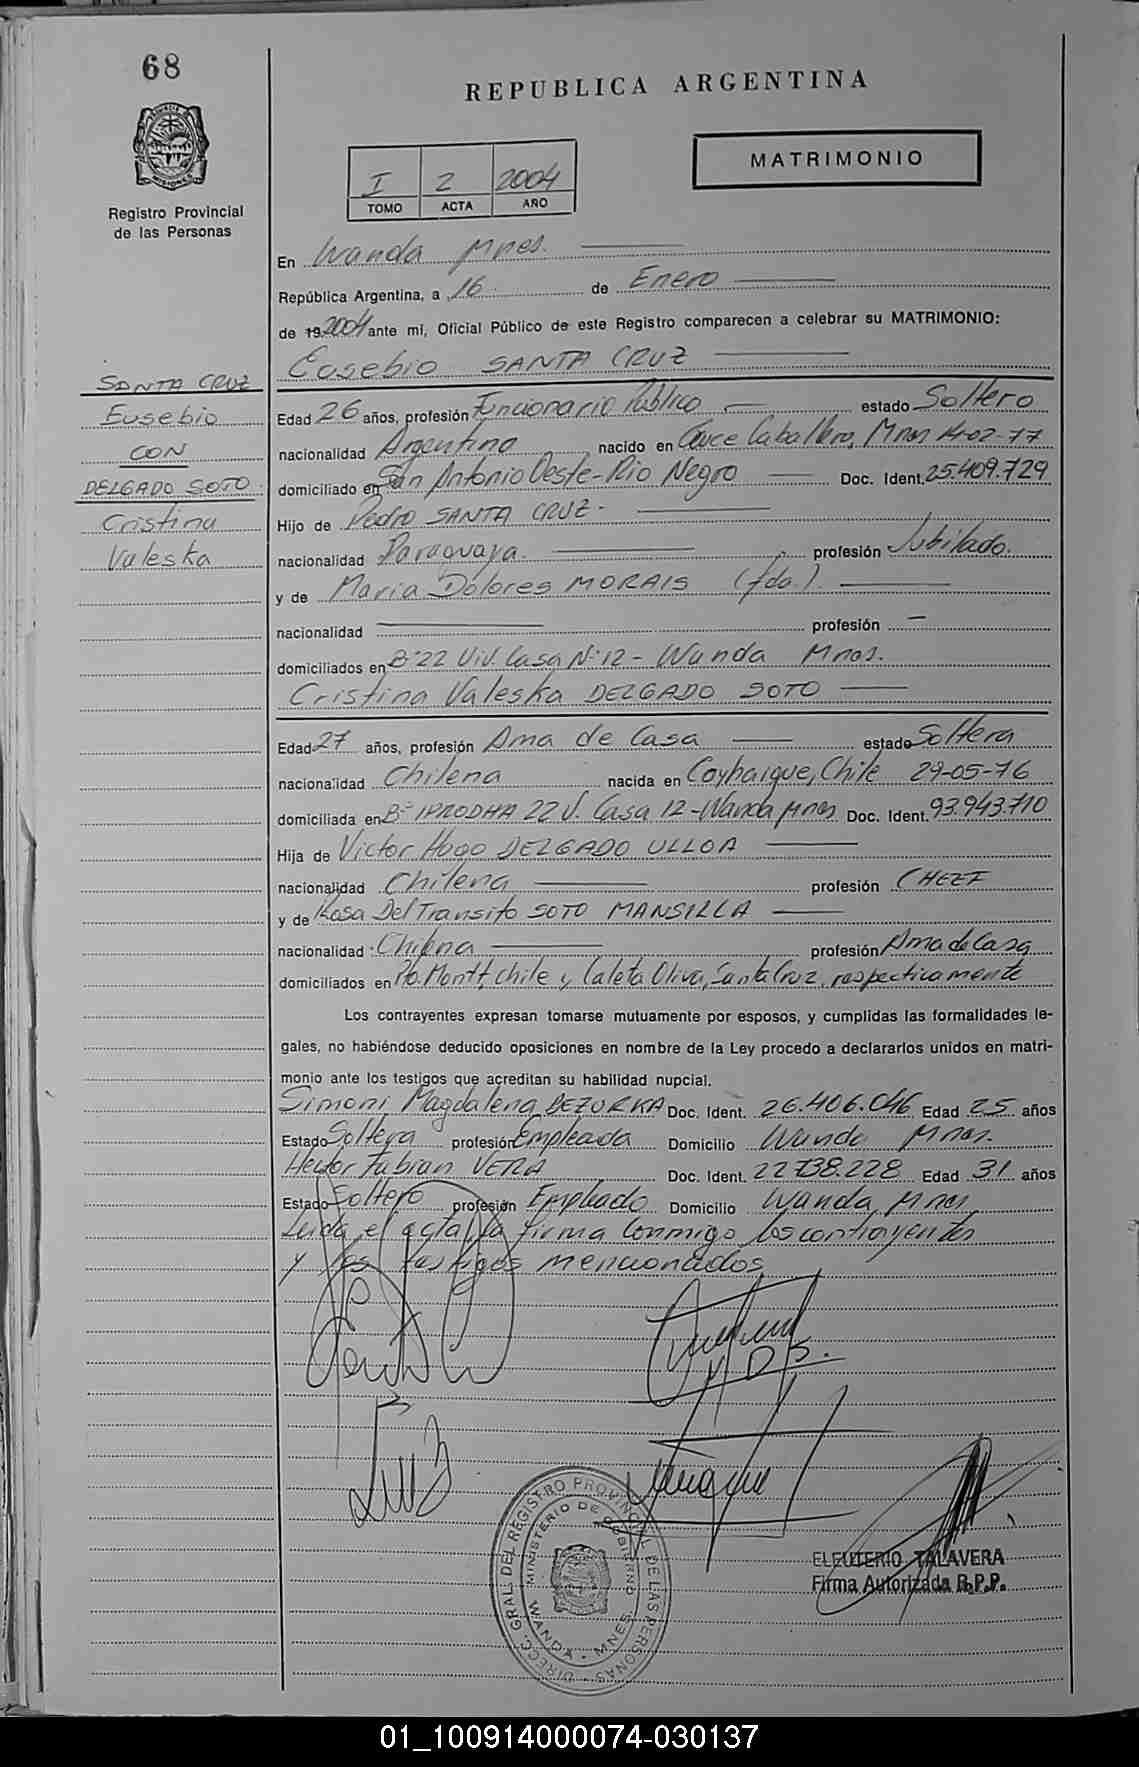 68
REPUBLICA ARGENTINA
MATRIMONIO
I 2 2004
TOMO ACTA AÑO
Registro Provincial
de las Personas
En Wanda Mnes.
República Argentina, a 16 de Enero
de 19 2004 ante mí, Oficial Público de este Registro comparecen a celebrar su MATRIMONIO:
Eusebio SANTA CRUZ
SANTA CRUZ
Eusebio
CON
DELGADO SOTO
Cristina
Valeska
Edad 26 años, profesión Funcionario Público estado Soltero
nacionalidad Argentino nacido en Caballero, Mnes 14-02-77
domiciliado en San Antonio Oeste-Rio Negro Doc. Ident. 25.409.729
Hijo de Pedro SANTA CRUZ-
nacionalidad Paraguaya. profesión Jubilado.
y de Maria Dolores MORAIS (fda.)
nacionalidad profesión
domiciliados en B° 22 Viv. Casa N° 12 - Wanda Mnes.
Cristina Valeska DELGADO SOTO
Edad 27 años, profesión Ama de Casa estado Soltera
nacionalidad Chilena nacida en Coyhaique, Chile 29-05-76
domiciliada en B° IPRODHA 22 V. Casa 12-Wanda Mnes Doc. Ident. 93.943.710
Hija de Victor Hugo DELGADO ULLOA
nacionalidad Chilena profesión CHEEF
y de Rosa Del Transito SOTO MANSILLA
nacionalidad Chilena profesión Ama de Casa
domiciliados en Pto. Montt, Chile y Caleta Oliva, Santa Cruz, respectivamente
Los contrayentes expresan tomarse mutuamente por esposos, y cumplidas las formalidades le-
gales, no habiéndose deducido oposiciones en nombre de la Ley procedo a declararlos unidos en matri-
monio ante los testigos que acreditan su habilidad nupcial.
Simoni Magdalena BEZURKA Doc. Ident. 26.406.046 Edad 25 años
Estado Soltera profesión Empleada Domicilio Wanda Mnes.
Hector Fabian VERA Doc. Ident. 22.738.228 Edad 31 años
Estado Soltero profesión Empleado Domicilio Wanda, Mnes
Leida el acta, la firma conmigo los contrayentes
y los testigos mencionados
DIRECC. GRAL. DEL REGISTRO PROVINCIAL DE LAS PERSONAS
MINISTERIO DE GOBIERNO
WANDA - MNES.
ELEUTERIO TALAVERA
Firma Autorizada R.P.P.
01_100914000074-030137